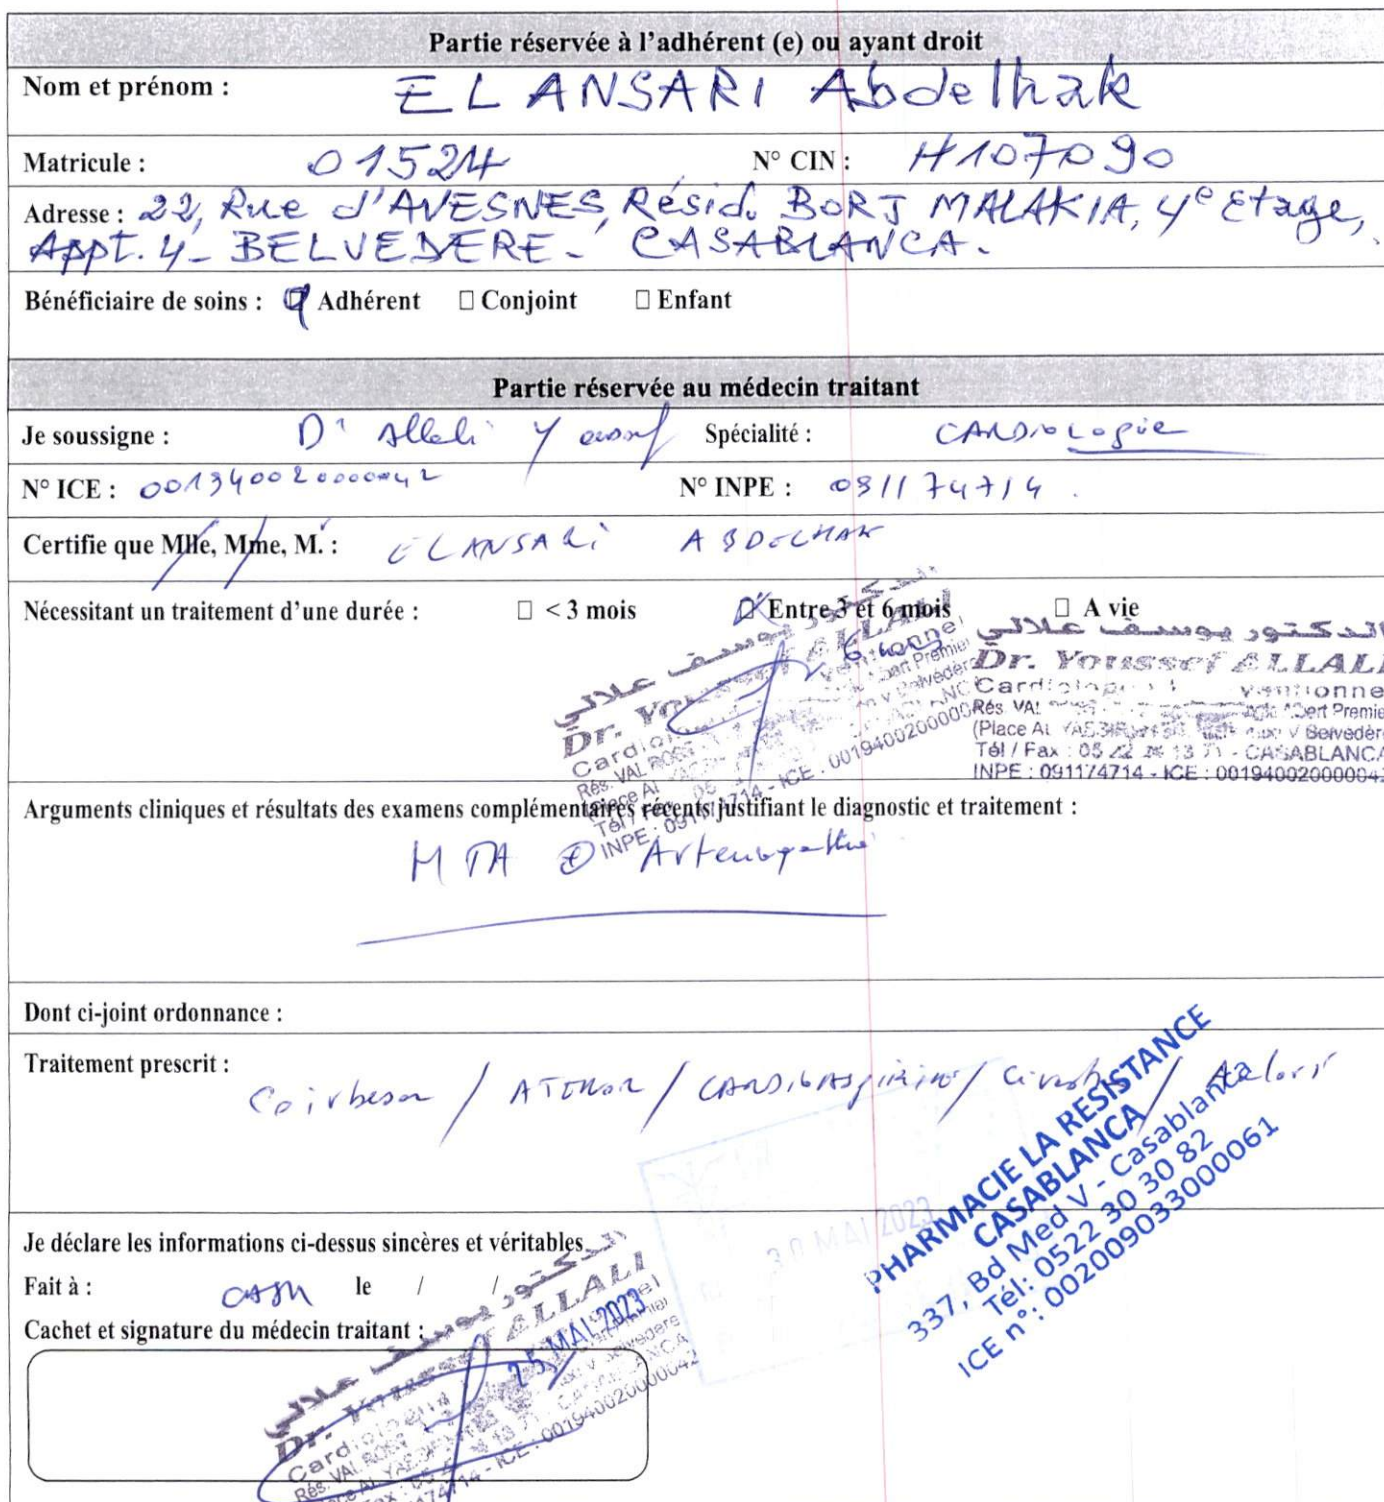 Partie réservée à l'adhérent (e) ou ayant droit
Nom et prénom : EL ANSARI Abdelhak
Matricule : 01524 N° CIN : H107090
Adresse : 22, Rue d'AVESNES, Résid. BORJ MALAKIA, 4e Etage,
Appt. 4 - BELVEDERE - CASABLANCA.
Bénéficiaire de soins : Adhérent □ Conjoint □ Enfant
Partie réservée au médecin traitant
Je soussigne : Dr Allali Youssef Spécialité : CARDIOLOGIE
N° ICE : N° INPE : 091174714
Certifie que Mlle, Mme, M. : ELANSARI ABDELHAK
Nécessitant un traitement d'une durée : □ < 3 mois Entre 3 et 6 mois □ A vie
6 mois
الدكتور يوسف علالي
Dr. Youssef ALLALI
INPE : 091174714 - ICE : 001940020000042
الدكتور يوسف علالي
Dr. Youssef ALLALI
Tél / Fax : 05 22 13 71 - CASABLANCA
INPE : 091174714 - ICE : 001940020000042
Arguments cliniques et résultats des examens complémentaires récents justifiant le diagnostic et traitement :
HTA Arteriopathie
Dont ci-joint ordonnance :
Traitement prescrit :
Coirbesar / ATENOR / CARDIOASPIRINE /
PHARMACIE LA RESISTANCE
CASABLANCA
337, Bd Med V - Casablanca
Tél: 0522 30 30 82
ICE n°: 002009033000061
30 MAI 2023
Je déclare les informations ci-dessus sincères et véritables
Fait à : CASA le / /
Cachet et signature du médecin traitant :
25 MAI 2023
الدكتور يوسف علالي
Dr. Youssef ALLALI